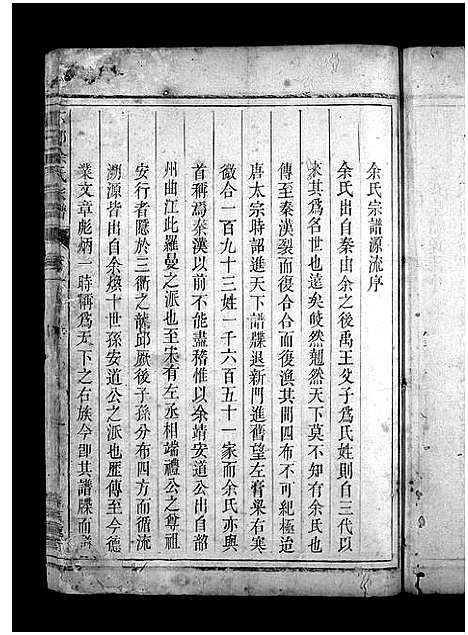 余氏宗譜源流序
余氏出自秦由余之後禹王攴子爲氏姓則自三代以
來其爲名世也遠矣岐然翹然天下莫不知有余氏也
傳至秦漢裂而復合合而復渙其間四布不可紀極迨
唐太宗時詔進天下譜牒退新門進舊望左膏粱右寒
微合一百九十三姓一千六百五十一家而余氏亦與
首稱焉秦漢以前不能盡稽惟以余靖安道公出自韶
州曲江此羅曼之派也至宋有左丞相端禮公之尊祖
安行者隱於三衢之龍邱厥後子孫分布四方而循流
溯源皆出自余煥十世孫安道公之派也歴傳至今德
業文章彪炳一時稱爲天下之右族今卽其譜牒而
余氏宗譜